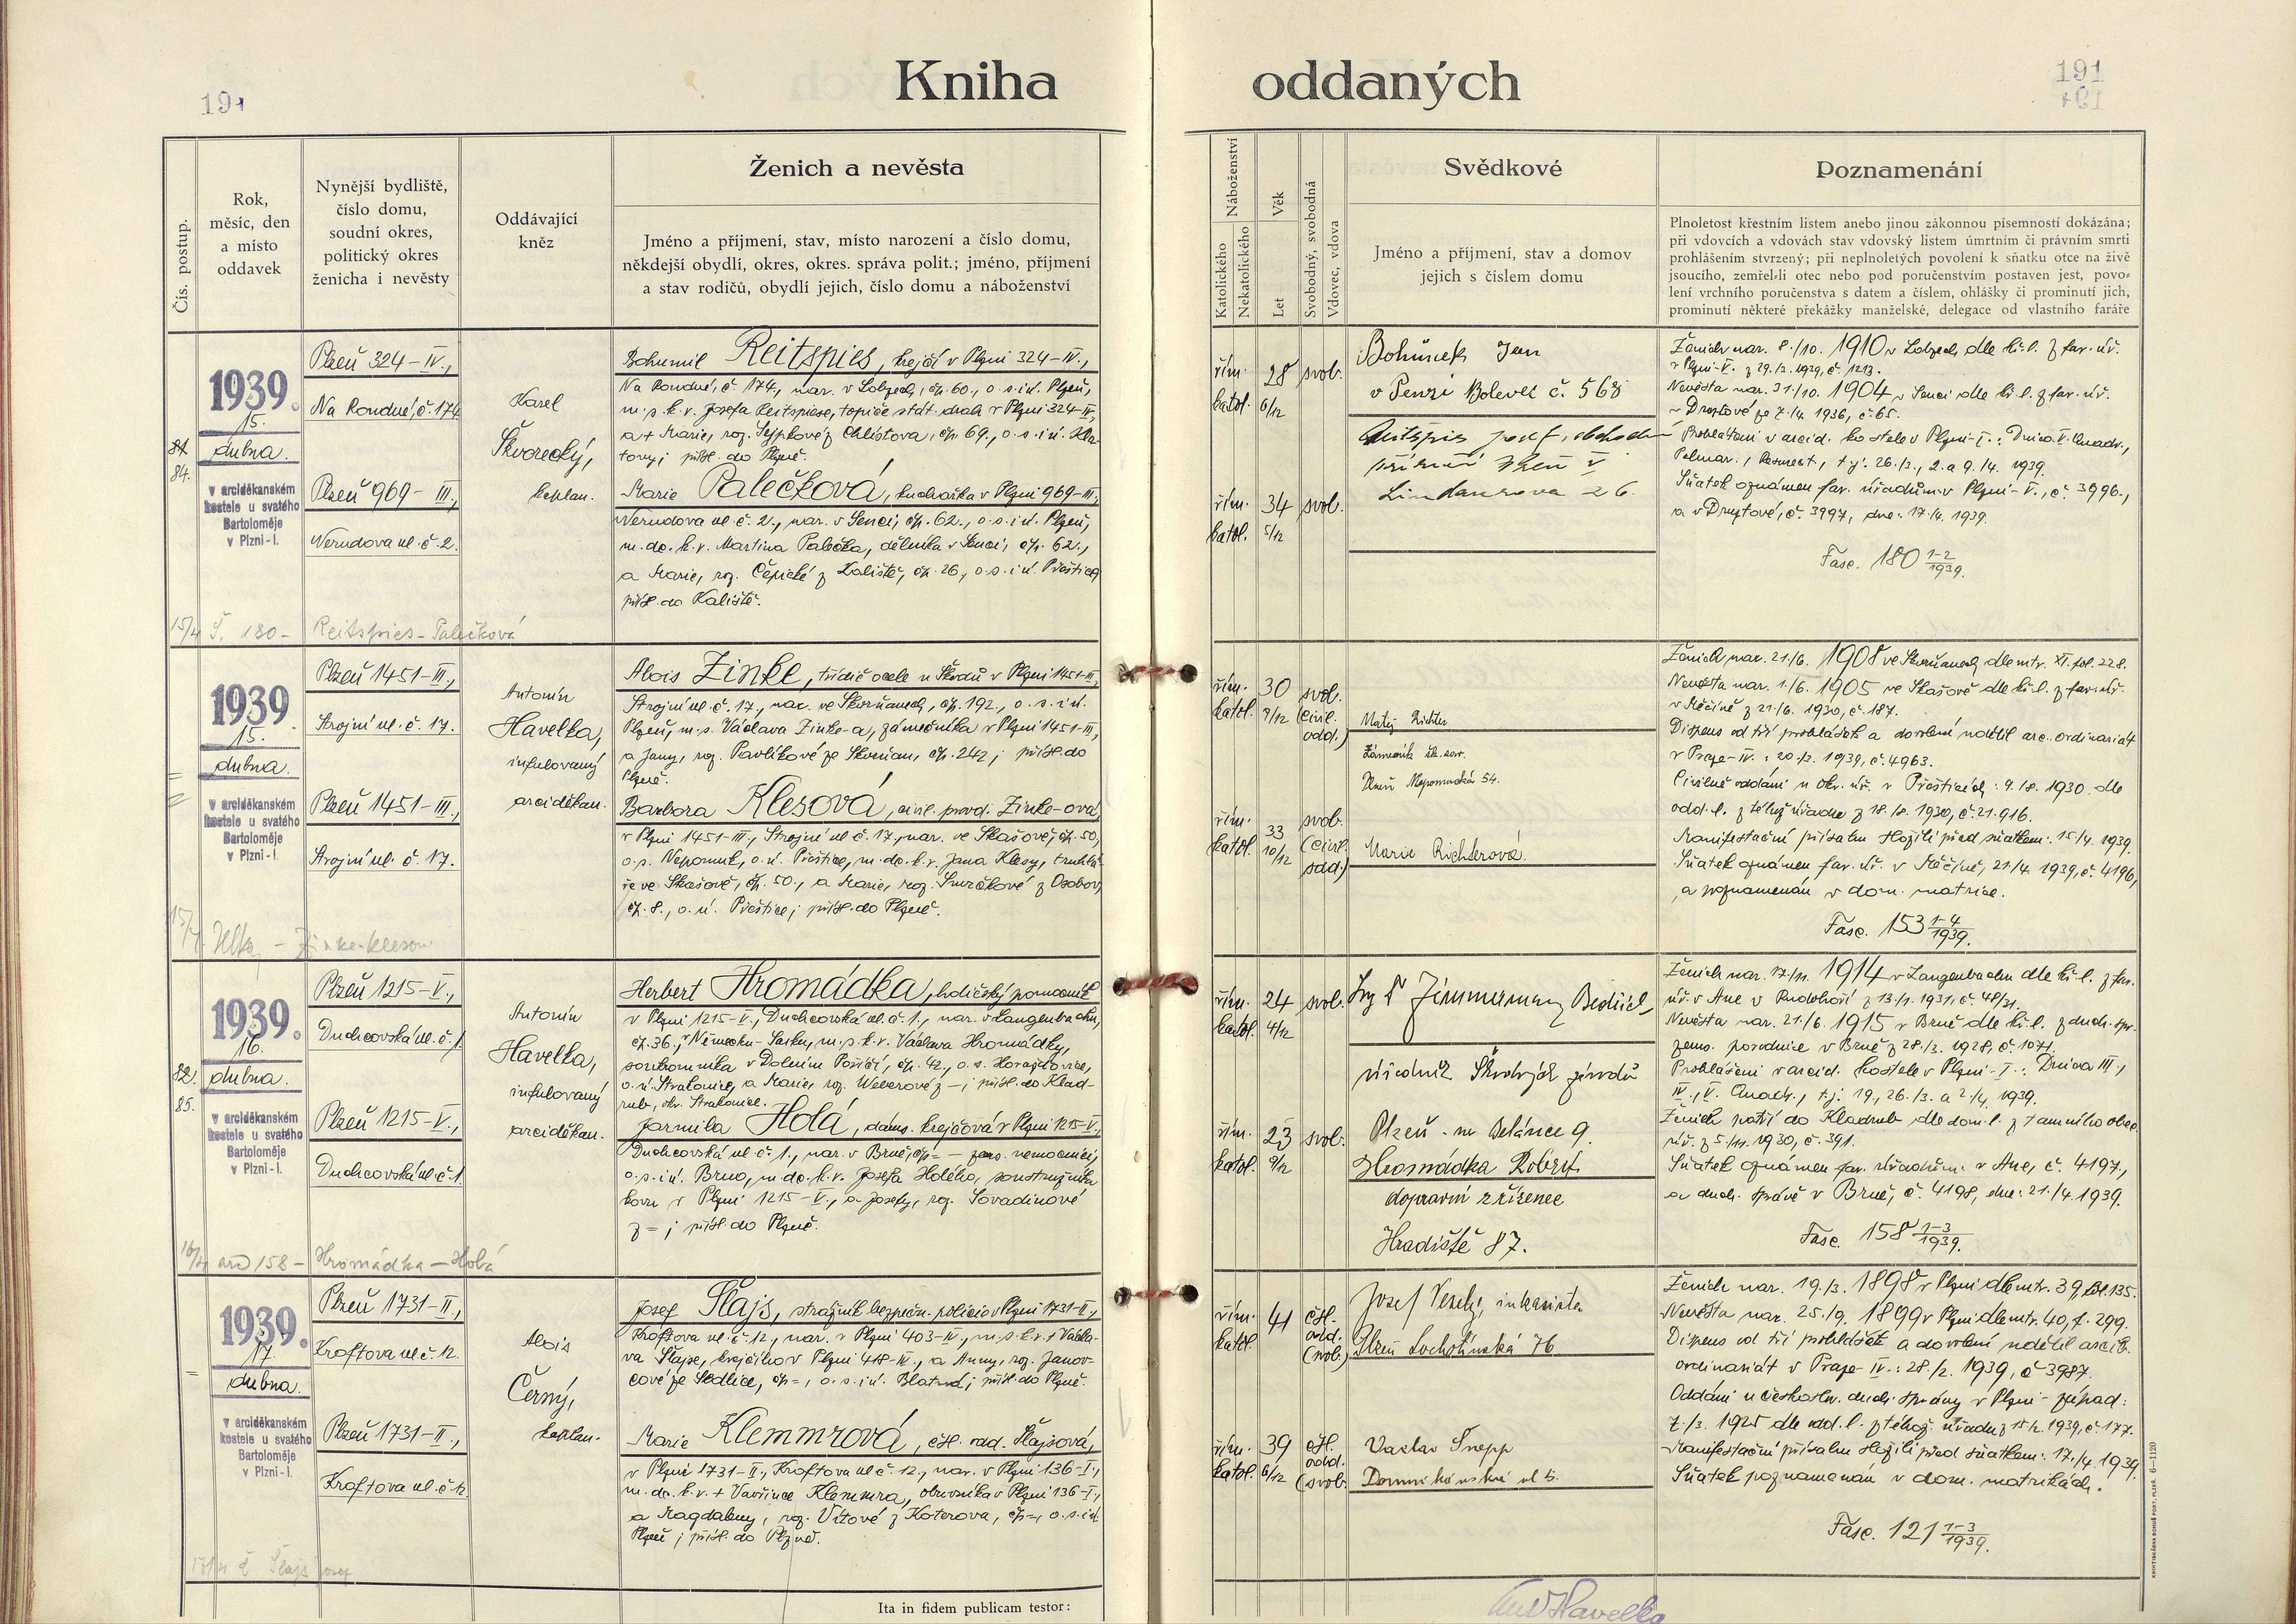 191
Kniha
Čís. postup.
Rok,
měsíc, den
a místo
oddavek
Nynější bydliště,
číslo domu,
soudní okres,
politický okres
ženicha i nevěsty
Oddávající
kněz
Ženich a nevěsta
Jméno a příjmení, stav, místo narození a číslo domu,
někdejší obydlí, okres, okres. správa polit.; jméno, příjmení
a stav rodičů, obydlí jejich, číslo domu a náboženství
81
84.
1939.
15.
dubna.
v arciděkanském
kostele u svatého
Bartoloměje
v Plzni-I.
Plzeň 324-IV.,
Na Roudné, č. 174
Plzeň 969-III.,
Nerudova ul. č. 2.
Karel
Škvorecký,
kaplan.
Bohumil Reitspies, krejčí v Plzni 324-IV.,
Na Roudné, č. 174, nar. v Lobzech, čp. 60., o.s.i ú. Plzeň,
m.s.k.v. Josefa Reitspiese, topiče stát. drah v Plzni 324-IV,
a + Marie, roz. Sejpkové z Chlístova, čp. 69., o.s.i ú. Kla-
tovy; přísl. do Plzně.
Marie Palečková, kuchařka v Plzni 969-III.,
Nerudova ul. č. 2., nar. v Senci, čp. 62., o.s.i ú. Plzeň,
m.dc.k.v. Martina Palečka, dělníka v Senci, čp. 62.,
a Marie, roz. Čepické z Kaliště, čp. 26., o.s.i ú. Přeštice;
přísl. do Kaliště.
15/4 Š. 180 - Reitspies - Palečková
1939.
15.
dubna.
v arciděkanském
kostele u svatého
Bartoloměje
v Plzni-I.
Plzeň 1451-III.,
Strojní ul. č. 17.
Plzeň 1451-III.,
Strojní ul. č. 17.
Antonín
Havelka,
infulovaný
arciděkan.
Alois Zinke, třídič ocele u Škodů v Plzni 1451-III.,
Strojní ul. č. 17., nar. ve Skvrňanech, čp. 192., o.s.i ú.
Plzeň, m.s. Václava Zinke-a, zámečníka v Plzni 1451-III.,
a Jany, roz. Pavlíkové ze Skvrňan, čp. 242; přísl. do
Plzně.
Barbora Klesová, civil. provd. Zinke-ová,
v Plzni 1451-III., Strojní ul. č. 17., nar. ve Skašově, čp. 50,
o.s. Nepomuk, o.ú. Přeštice, m.dc.k.v. Jana Klesy, truhlá-
ře ve Skašově, čp. 50., a Marie, roz. Smrčkové z Osobov,
čp. 8., o.ú. Přeštice; přísl. do Plzně.
1939.
16.
82.
85.
dubna.
v arciděkanském
kostele u svatého
Bartoloměje
v Plzni-I.
Plzeň 1215-V.,
Duchcovská ul. č. 1.
Plzeň 1215-V.,
Duchcovská ul. č. 1.
Antonín
Havelka,
infulovaný
arciděkan.
Herbert Hromádka, holičský pomocník
v Plzni 1215-V., Duchcovská ul. č. 1., nar. v Langenbachu,
čp. 36., v Německu-Sasku, m.s.k.v. Václava Hromádky,
soukromníka v Dolním Poříčí, čp. 42., o.s. Horažďovice,
o.ú. Strakonice, a Marie, roz. Weberové z -; přísl. do Klad-
rub, okr. Strakonice.
Jarmila Holá, dáms. krejčová v Plzni 1215-V.,
Duchcovská ul. č. 1., nar. v Brně, čp= - zems. nemocnici,
o.s.i ú. Brno, m.dc.k.v. Josefa Holého, soustružníka
kovu v Plzni 1215-V., a Josefy, roz. Sovadinové
z =; přísl. do Plzně.
16/4 arc 158 - Hromádka - Holá
1939.
17.
dubna.
v arciděkanském
kostele u svatého
Bartoloměje
v Plzni-I.
Plzeň 1731-II.,
Kroftova ul. č. 12.
Plzeň 1731-II.,
Kroftova ul. č. 12.
Alois
Černý,
kaplan.
Josef Šlajs, strážník bezpečn. policie v Plzni 1731-II.,
Kroftova ul. č. 12., nar. v Plzni 403-IV., m.s.k.v. + Václa-
va Šlajse, krejčího v Plzni 418-IV., a Anny, roz. Janov-
cové ze Sedlice, čp=, o.s.i ú. Blatná; přísl. do Plzně.
Marie Klemmrová, čsl. odd. Šlajsová,
v Plzni 1731-II., Kroftova ul. č. 12., nar. v Plzni 136-I.,
m.dc.k.v. + Vavřince Klemmra, obuvníka v Plzni 136-I.,
a Magdaleny, roz. Vítové z Koterova, čp=, o.s.i ú.
Plzeň; přísl. do Plzně.
Ita in fidem publicam testor:
oddaných
191
Náboženství
Katolického
Nekatolického
Věk
Let
Svobodný, svobodná
Vdovec, vdova
Svědkové
Jméno a příjmení, stav a domov
jejich s číslem domu
Poznamenání
Plnoletost křestním listem anebo jinou zákonnou písemností dokázána;
při vdovcích a vdovách stav vdovský listem úmrtním či právním smrti
prohlášením stvrzený; při neplnoletých povolení k sňatku otce na živě
jsoucího, zemřel-li otec nebo pod poručenstvím postaven jest, povo-
lení vrchního poručenstva s datem a číslem, ohlášky či prominutí jich,
prominutí některé překážky manželské, delegace od vlastního faráře
řím. 28 svob.
katol. 6/12
řím. 34 svob.
katol. 5/12
Bohůnek Jan
v Penzi Bolevec č. 568
Lindaurova 26
Ženich nar. 8./10. 1910 v Lobzech dle kř.l. z far. úř.
v Plzni-V. z 29./3. 1939, č. 1213.
Nevěsta nar. 31./10. 1904 v Senci dle kř.l. z far. úř.
v Druztové ze 7./4. 1936, č. 65.
Prohlášeni v arcid. kostele v Plzni-I.: Dnica V. Quadr.,
Palmar., Resurrect., t.j. 26./3., 2. a 9./4. 1939.
Sňatek oznámen far. úřadům v Plzni-V., č. 3996.,
a v Druztové, č. 3997, dne: 17./4. 1939.
Fasc. 180 1-2/1939.
řím. 30 svob.
katol. 9/12 (civil. odd.)
řím. 33 svob.
katol. 10/12 (civil. odd.)
Matěj Richter
Zámečník šk. zav.
Plzeň Nepomucká 54.
Marie Richterová.
Ženich nar. 21./6. 1908 ve Skvrňanech dle mtr. XI. fol. 228.
Nevěsta nar. 1./6. 1905 ve Skašově dle kř.l. z far. úř.
v Měčíně z 21./6. 1930, č. 187.
Dispens od tří prohlášek a dovolení udělil arc. ordinariát
v Praze-IV.: 20./3. 1939, č. 4963.
Civilně oddáni u okr. úř. v Přešticích: 9./8. 1930. dle
odd.l. z téhož úřadu z 18./8. 1930, č. 21.916.
Manifestační přísahu složili před sňatkem: 15./4. 1939.
Sňatek oznámen far. úř. v Měčíně, 21./4. 1939, č. 4196,
a poznamenán v dom. matrice.
Fasc. 153 1-4/1939.
řím. 24 svob.
katol. 4/12
řím. 23 svob.
katol. 9/12
Ing Dr Zimmermann Bedřich,
úředník Škodových závodů
Plzeň - na Belánce 9.
Hromádka Robert
dopravní zřízenec
Hradiště 87.
Ženich nar. 17./11. 1914 v Langenbachu dle kř.l. z far.
úř. v Aue v Rudohoří z 13./1. 1931, č. 48/31.
Nevěsta nar. 21./6. 1915 v Brně dle kř.l. z duch. spr.
zems. porodnice v Brně z 28./3. 1928, č. 1071.
Prohlášeni v arcid. kostele v Plzni-I.: Dnica III.,
IV., V. Quadr., t.j. 19., 26./3. a 2./4. 1939.
Ženich patří do Kladrub dle dom.l. z tamního obec.
úř. z 5./11. 1930, č. 391.
Sňatek oznámen far. úřadům: v Aue, č. 4197.,
a duch. správě v Brně, č. 4198, dne: 21./4. 1939.
Fasc. 158 1-3/1939.
řím. 41 čsl. odd. (svob.)
katol.
řím. 39 čsl. odd.
katol. 6/12 (svob.
Josef Veselý, inkasista
Plzeň Lochotínská 76
Vaclav Šnopp
Dominikánská ul 5.
Ženich nar. 19./3. 1898 v Plzni dle mtr. 39, fol. 135.
Nevěsta nar. 25./9. 1899 v Plzni dle mtr. 40, f. 299.
Dispens od tří prohlášek a dovolení udělil arcib.
ordinariát v Praze-IV.: 28./2. 1939, č. 3987.
Oddáni u českosl. duch. správy v Plzni-západ:
7./3. 1925 dle odd.l. z téhož úřadu z 15./2. 1939, č. 177.
Manifestační přísahu složili před sňatkem: 17./4. 1939.
Sňatek poznamenán v dom. matrikách.
Fasc. 121 1-3/1939.
KNIHTISKÁRNA BOHUŠ PORT, PLZEŇ. 6-1120
Havelka